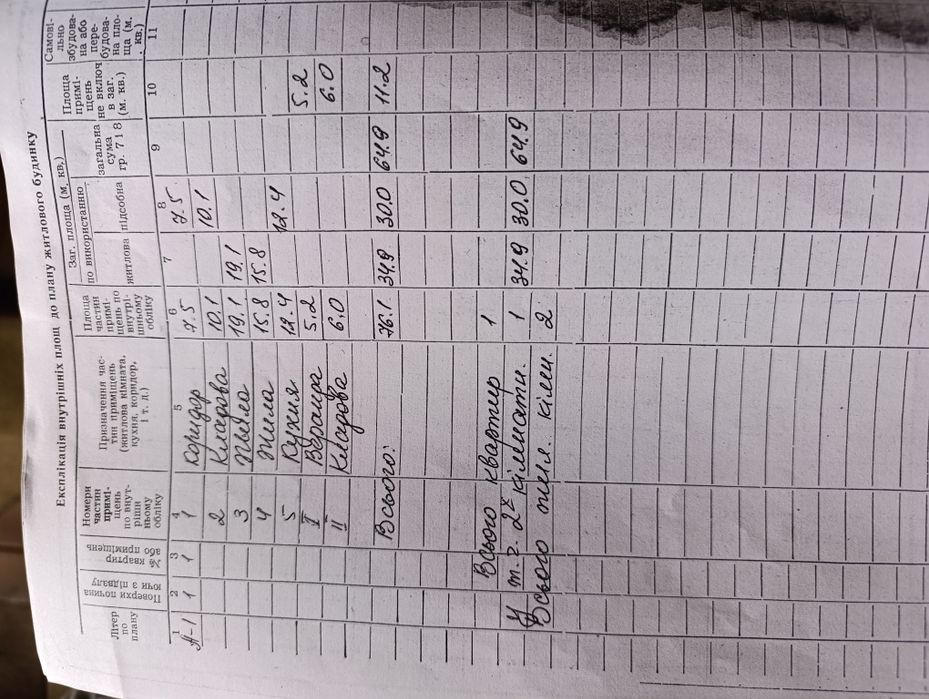 Експлікація внутрішніх площ до плану житлового будинку
Літер по плану
Поверхи починаючи з підвалу
№ квартир або приміщень
Номери частин приміщень по внутрішньому обліку
Призначення частин приміщень (житлова кімната, кухня, коридор, і т. д.)
Площа частин приміщень по внутрішньому обліку
Заг. площа (м. кв.)
по використанню
житлова
підсобна
загальна сума гр. 7 і 8
Площа приміщень не включ в заг. (м. кв.)
Самовільно збудована або перебудована площа (м. кв.)
1 2 3 4 5 6 7 8 9 10 11
А-1 1 1 1 Коридор 7.5 7.5
2 Кладова 10.1 10.1
3 Жила 19.1 19.1
4 Жила 15.8 15.8
5 Кухня 12.4 12.4
I Веранда 5.2 5.2
II Кладова 6.0 6.0
Всього: 76.1 34.9 30.0 64.9 11.2
Всього квартир 1
У т.г. 2х кімнатн. 1 34.9 30.0 64.9
Всього жил. кімн. 2